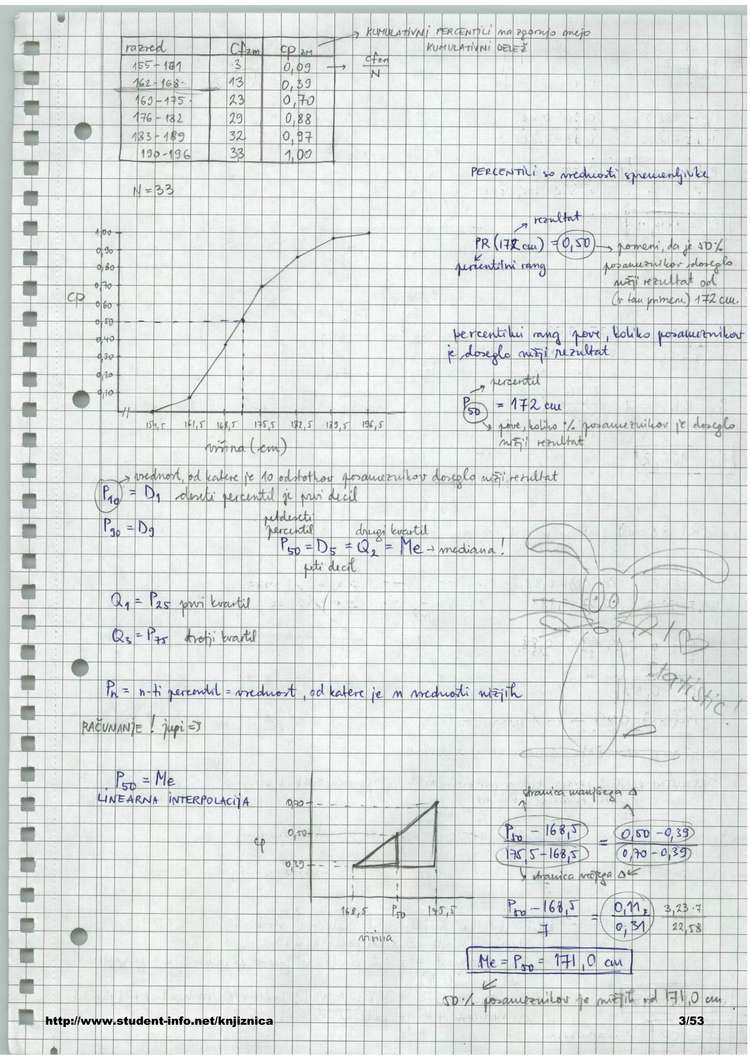 KUMULATIVNI PERCENTILI na zgornjo mejo
KUMULATIVNI DELEŽ
razred cfzm cpzm
cfzm
N
155-161 3 0,09
162-168 13 0,39
169-175 23 0,70
176-182 29 0,88
183-189 32 0,97
190-196 33 1,00
N=33
PERCENTILI so vrednosti spremenljivke
rezultat
PR(172 cm) = 0,50 → pomeni, da je 50%
percentilni rang
posameznikov doseglo
nižji rezultat od
(v tem primeru) 172 cm.
1,00
0,90
0,80
0,70
0,60
0,50
0,40
0,30
0,20
0,10
cp
154,5 161,5 168,5 175,5 182,5 189,5 196,5
višina (cm)
percentilni rang pove, koliko posameznikov
je doseglo nižji rezultat
percentil
P50 = 172 cm
pove, koliko % posameznikov je doseglo
nižji rezultat
vrednost, od katere je 10 odstotkov posameznikov doseglo nižji rezultat
P10 = D1 deseti percentil je prvi decil
P90 = D9
petdeseti
percentil
drugi kvartil
P50 = D5 = Q2 = Me → mediana!
peti decil
Q1 = P25 prvi kvartil
Q3 = P75 tretji kvartil
I ♡
statistic!
Pn = n-ti percentil = vrednost, od katere je n vrednosti nižjih
RAČUNANJE! jupi =)
P50 = Me
LINEARNA INTERPOLACIJA
cp
0,70
0,50
0,39
168,5 P50 175,5
višina
stranica manjšega Δ
P50 - 168,5 = 0,50 - 0,39
175,5 - 168,5 0,70 - 0,39
stranica večjega Δ
P50 - 168,5 = 0,11
7 0,31
3,23·7
22,58
Me = P50 = 171,0 cm
50% posameznikov je nižjih od 171,0 cm.
http://www.student-info.net/knjiznica 3/53